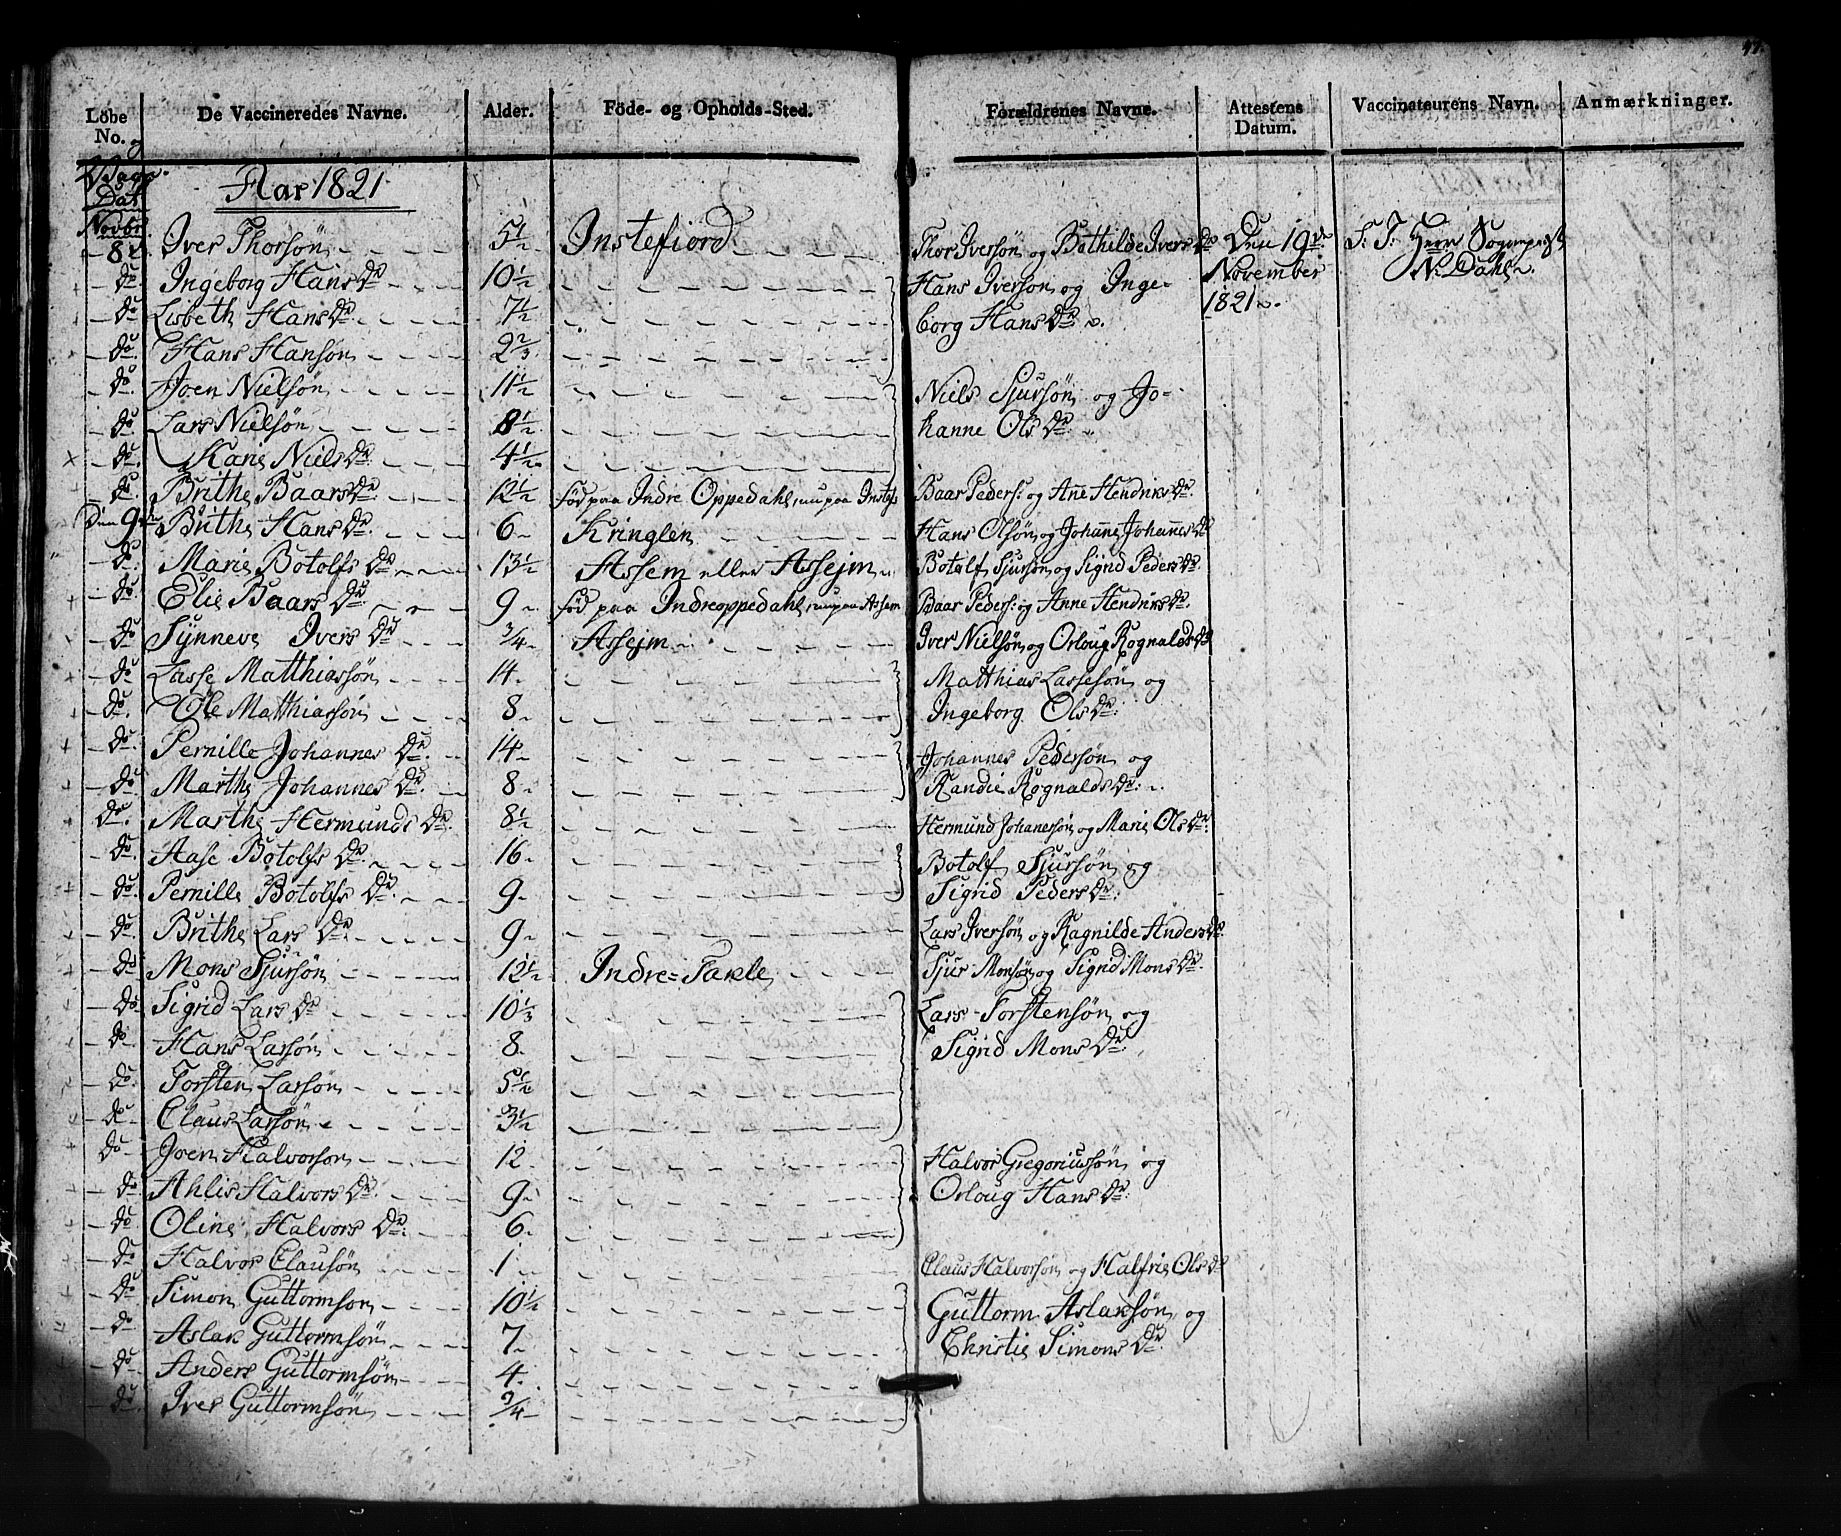 47.
Löbe No. | De Vaccineredes Navne. | Alder. | Föde- og Opholds-Sted. | Forældrenes Navne. | Attestens Datum. | Vaccinateurens Navn. | Anmærkninger.
Dag. Dat. | Aar 1821
Novbr.
8de | Iver Thorsön | 5 1/2 | Instefiord | Thor Iversön og Bothilde Ivers Dr | Den 19de | S. T. Herr Sogenpræst
Do | Ingeborg Hans Dr | 10 1/2 | Hans Iverson og Inge- | November | N. Dahl
Do | Lisbeth Hans Dr | 7 1/2 | borg Hans Dr | 1821
Do | Hans Hansön | 2 2/3
Do | Joen Nielsön | 11 1/2 | Niels Sjursön og Jo-
Do | Lars Nielsön | 8 1/2 | hanne Ols Dr
x Do | Kari Niels Dr | 4 1/2
Do | Brithe Baars Dr | 12 1/2 | föd paa Indre Oppedahl, nu paa Instef | Baar Peders: og Anne Hendriks Dr
Den 9de | Brithe Hans Dr | 6 | Kringlen | Hans Olsön og Johanne Johannes Dr
Do | Marie Botolfs Dr | 13 1/2 | Assem eller Assejm | Botolf Sjursön og Sigrid Peders Dr
Do | Elie Baars Dr | 9 | föd paa Indreoppedahl, nu paa Assem | Baar Peders: og Anne Hendriks Dr
Do | Synneve Ivers Dr | 3/4 | Assejm | Iver Nielsön og Orloug Rognalds Dr
Do | Lasse Matthiassön | 14 | Matthias Lassesön og
Do | Ole Matthiassön | 8 | Ingeborg Ols Dr
Do | Pernille Johannes Dr | 14 | Johannes Pedersön og
Do | Marthe Johannes Dr | 8 | Randie Rognalds Dr
Do | Marthe Hermunds Dr | 8 1/2 | Hermund Johanesön og Marie Ols Dr
Do | Aase Botolfs Dr | 16 | Botolf Sjursön og
Do | Pernille Botolfs Dr | 9 | Sigrid Peders Dr
Do | Brithe Lars Dr | 9 | Lars Iversön og Ragnilde Anders Dr
Do | Mons Sjursön | 12 1/2 | Indre-Fakle | Sjur Monsön og Sigrid Mons Dr
Do | Sigrid Lars Dr | 10 1/3 | Lars Torstensön og
Do | Hans Larsön | 8 | Sigrid Mons Dr
Do | Torsten Larsön | 5 1/2
Do | Claus Larsön | 3 1/2
Do | Joen Halvorson | 12 | Halvor Gregoriussön og
Do | Ahlis Halvors Dr | 9 | Orloug Hans Dr
Do | Oline Halvors Dr | 6
Do | Halvor Clausön | 1 | Claus Halvorsön og Halfrie Ols Dr
Do | Simon Guttormson | 10 1/2 | Guttorm Aslaksön og
Do | Aslak Guttormsön | 7 | Christie Simons Dr
Do | Anders Guttormsön | 4
Do | Iver Guttormsön | 3/4